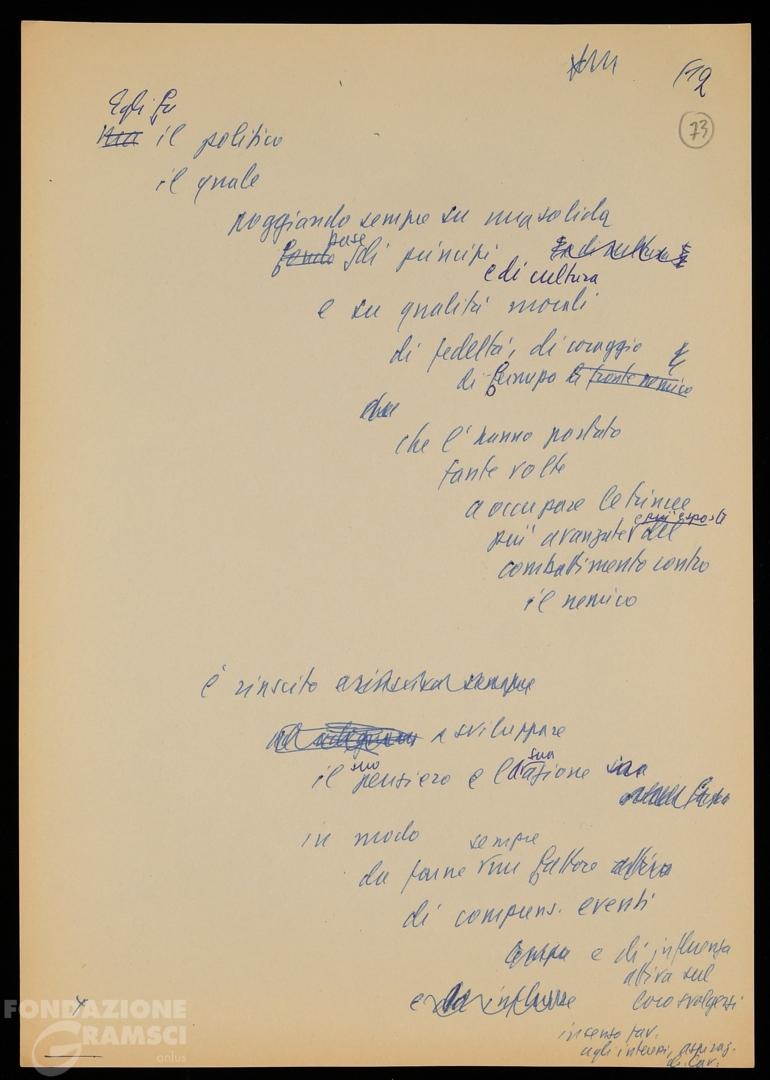 12
73
Egli fu
ma il politico
il quale
poggiando sempre su una solida
base
fondo di principi
e di cultura
e su qualità morali
di fedeltà, di coraggio e
di fronte nemico
che
che l'hanno portato
tante volte
a occupare le trincee
e più esposte
più avanzate del
combattimento contro
il nemico
è riuscito
a sviluppare
il suo pensiero e la sua azione sua
in modo sempre
da farne un fattore attivo
di comprens. eventi
e di influenza
attiva sul
e influire loro svolgersi
in senso fav.
agli interessi, aspiraz.
di lav.
FONDAZIONE
GRAMSCI
onlus